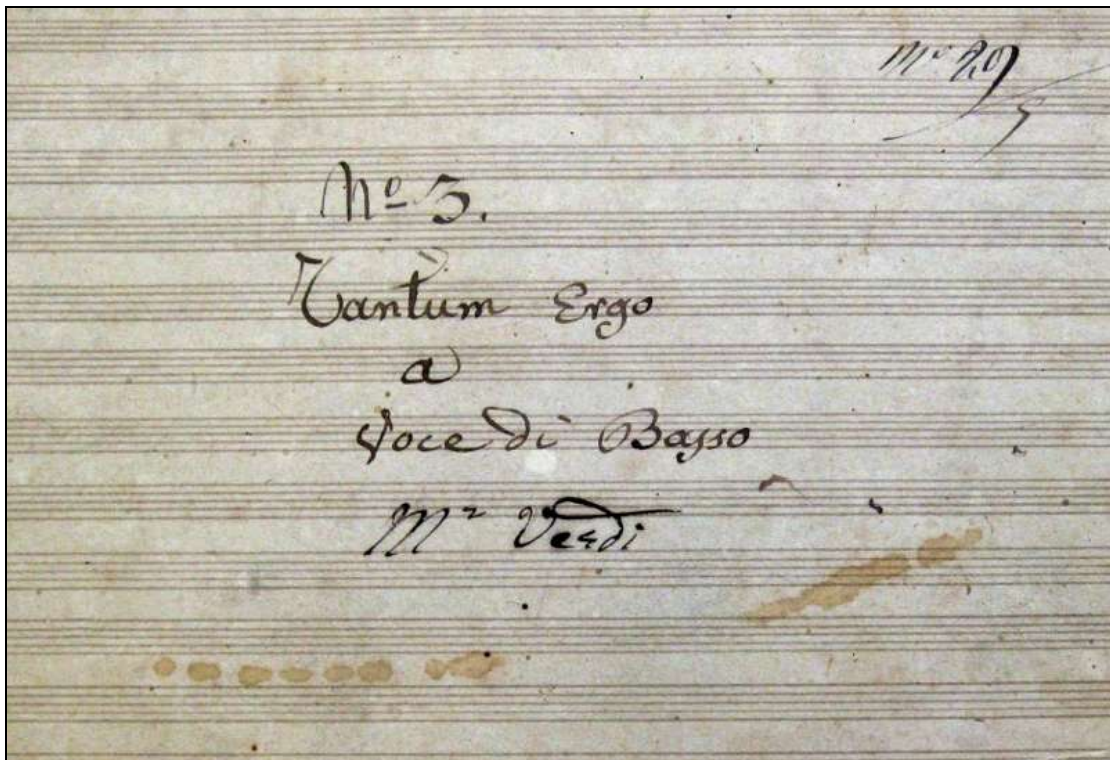 Nº 29
5
Nº 3.
Tantum Ergo
a
Voce di Basso
Mº Verdi